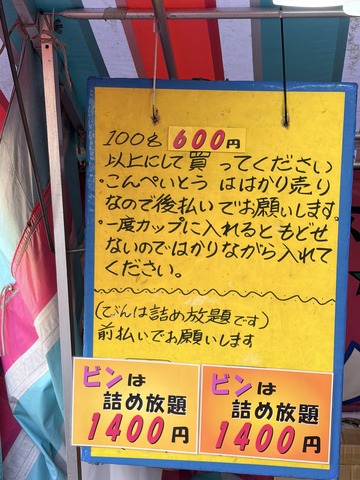 100g 600円
以上にして買ってください
・こんぺいとう ははかり売り
なので後払いでお願いします。
・一度カップに入れるともどせ
ないのではかりながら入れて
ください。
(びんは詰め放題です)
前払いでお願いします
ビンは
詰め放題
1400円
ビンは
詰め放題
1400円